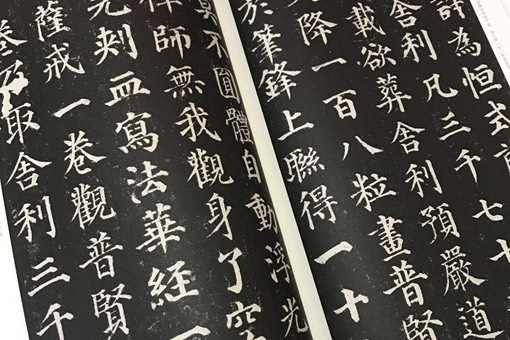 許為恒式前
舍利凡三千七十
載欲葬舍利預嚴道
又降一百八粒畫普賢
於筆鋒上聯得一十
莫不圓體自動浮光
禪師無我觀身了空
先刺血寫法華經一
薩戒一卷觀普賢
卷乃取舍利三千